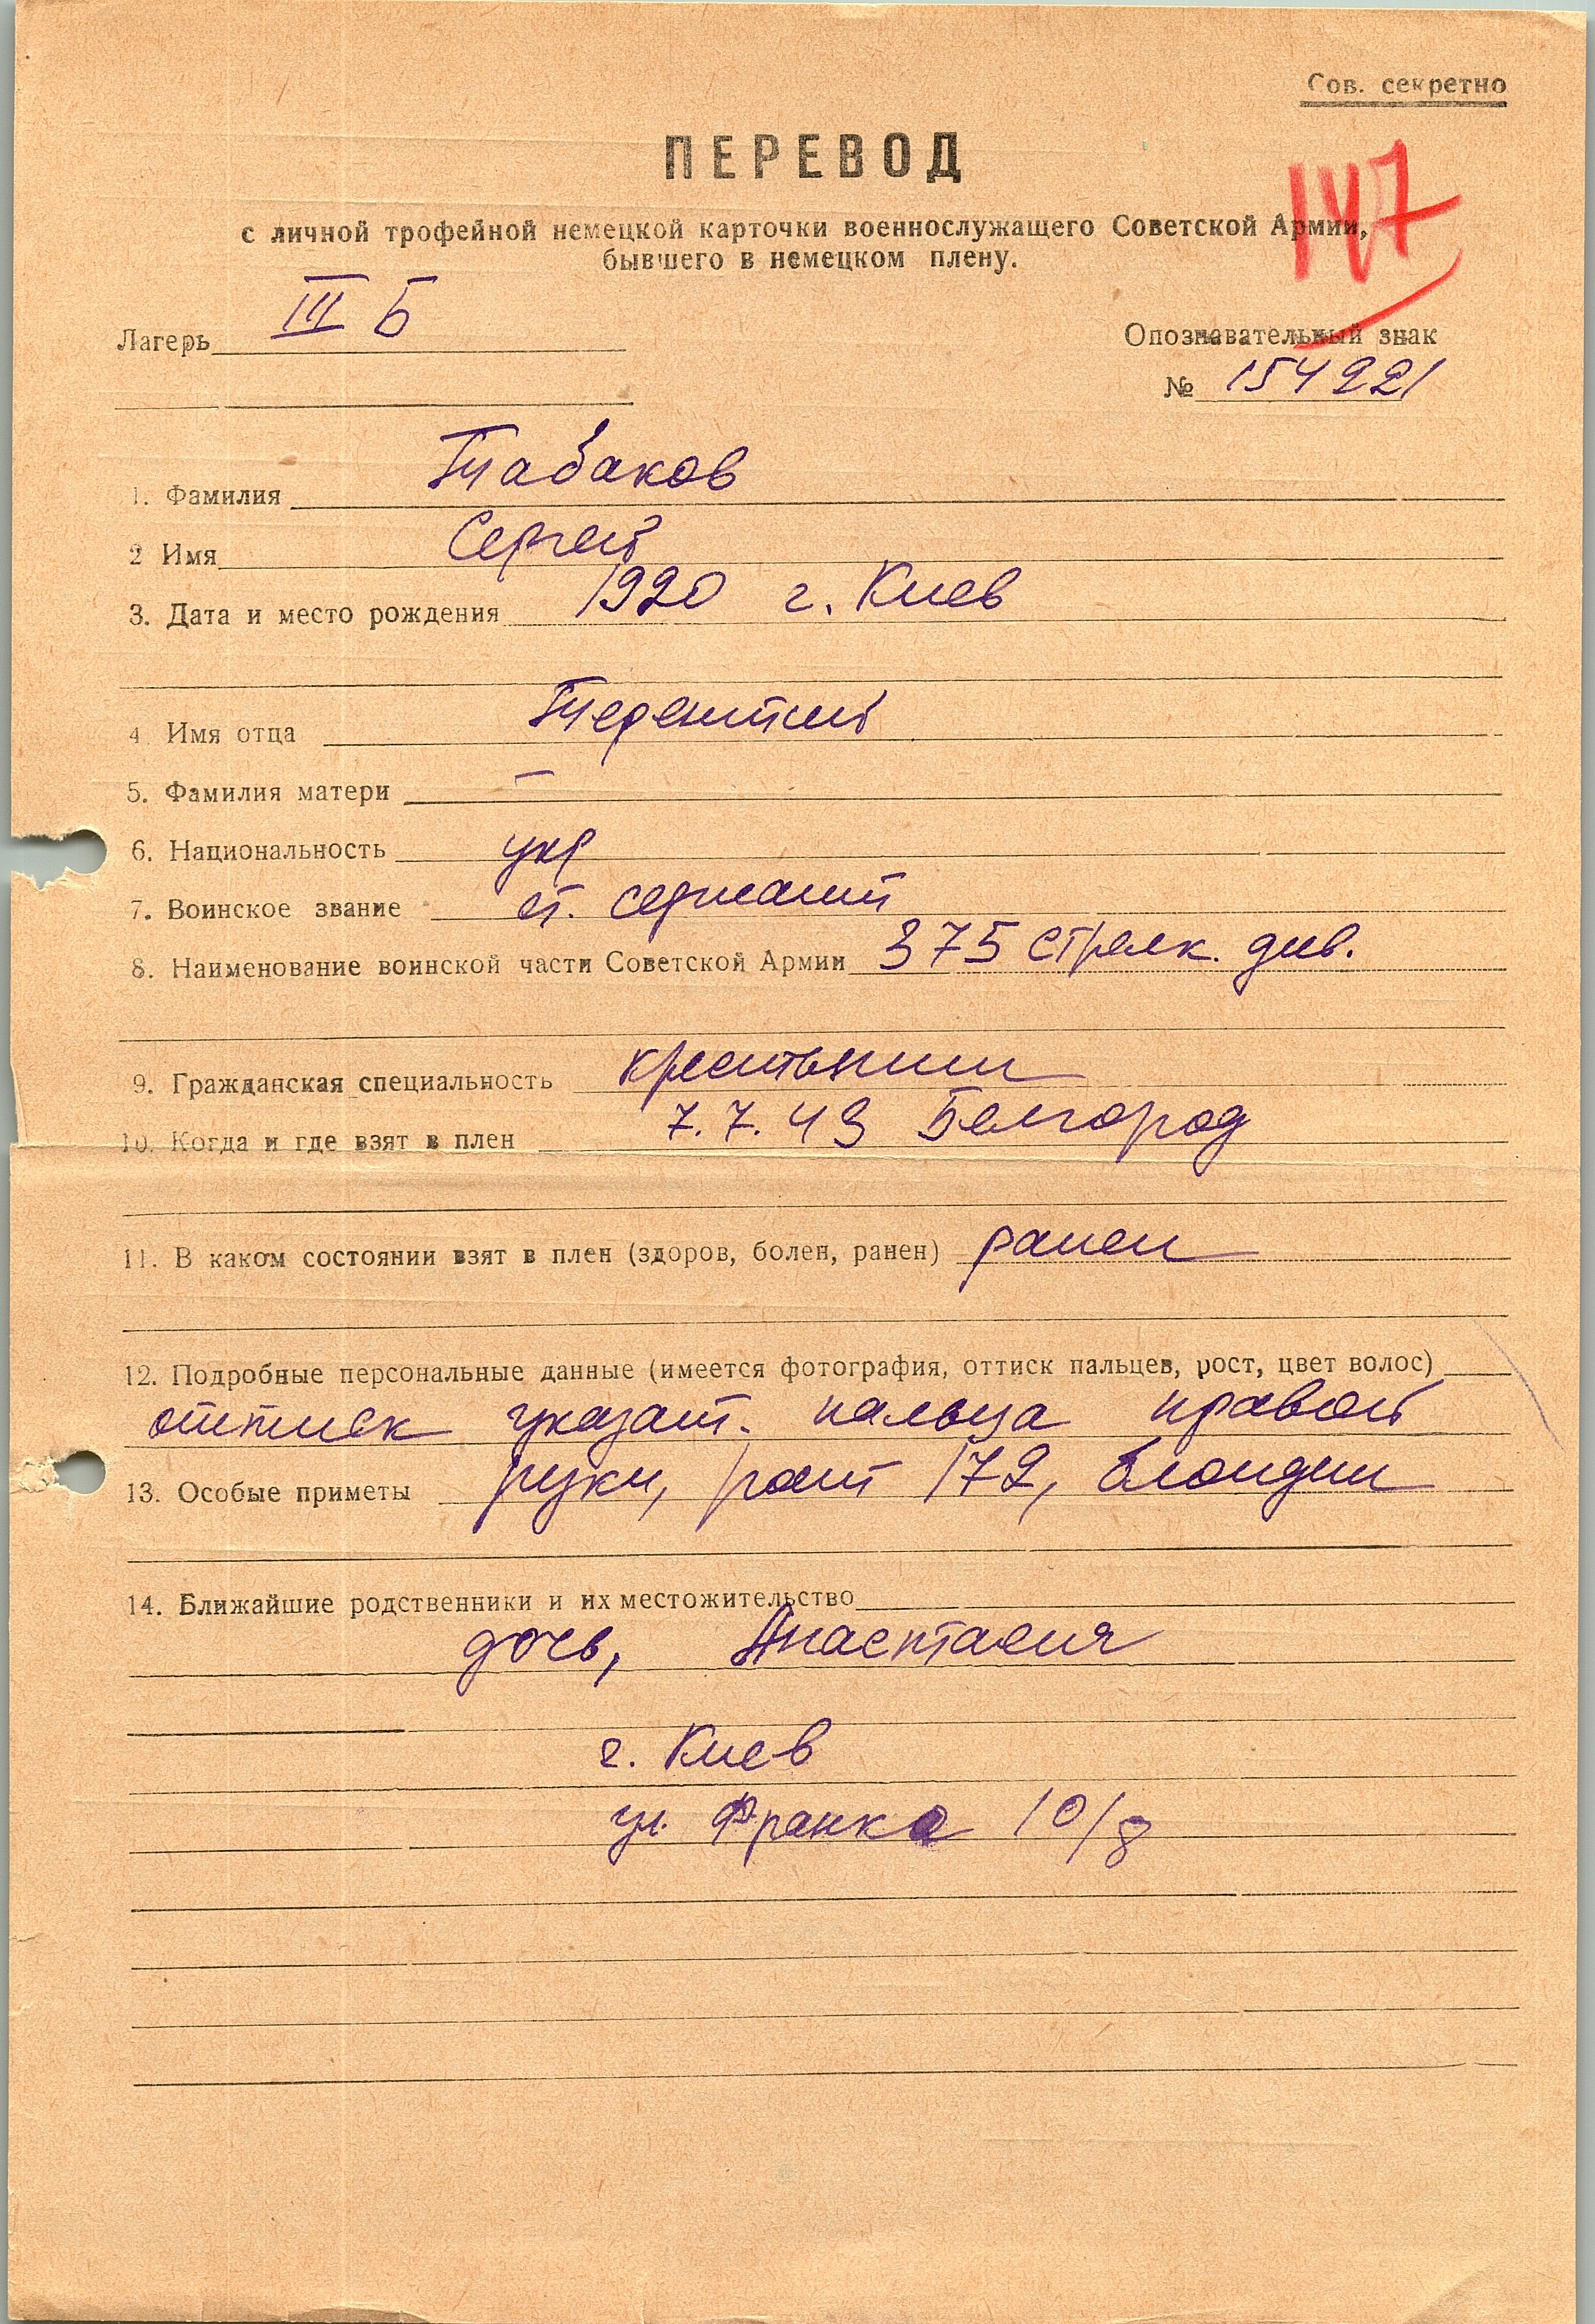 Сов. секретно
147
ПЕРЕВОД
с личной трофейной немецкой карточки военнослужащего Советской Армии,
бывшего в немецком плену.
Лагерь III Б
Опознавательный знак
№ 154221
1. Фамилия Табаков
2 Имя Сергей
3. Дата и место рождения 1920 г. Киев
4 Имя отца Терентий
5. Фамилия матери —
6. Национальность укр
7. Воинское звание ст. сержант
8. Наименование воинской части Советской Армии 375 стрелк. див.
9. Гражданская специальность крестьянин
10. Когда и где взят в плен 7.7.43 Белгород
11. В каком состоянии взят в плен (здоров, болен, ранен) ранен
12. Подробные персональные данные (имеется фотография, оттиск пальцев, рост, цвет волос)
оттиск указат. пальца правой
13. Особые приметы руки, рост 172, блондин
14. Ближайшие родственники и их местожительство
дочь, Анастасия
г. Киев
ул. Франко 10/8